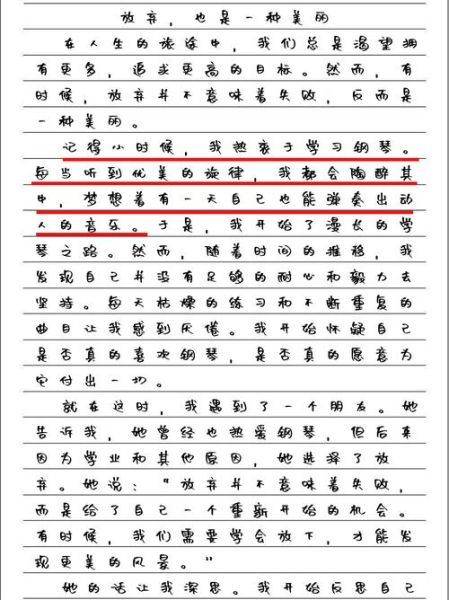 放弃，也是一种美丽
在人生的旅途中，我们总是渴望拥
有更多，追求更高的目标。然而，有
时候，放弃并不意味着失败，反而是
一种美丽。
记得小时候，我热衷于学习钢琴。
每当听到优美的旋律，我都会陶醉其
中，梦想着有一天自己也能弹奏出动
人的音乐。于是，我开始了漫长的学
琴之路。然而，随着时间的推移，我
发现自己并没有足够的耐心和毅力去
坚持。每天枯燥的练习和不断重复的
曲目让我感到厌倦。我开始怀疑自己
是否真的喜欢钢琴，是否真的愿意为
它付出一切。
就在这时，我遇到了一个朋友。她
告诉我，她曾经也热爱钢琴，但后来
因为学业和其他原因，她选择了放
弃。她说："放弃并不意味着失败，
而是给了自己一个重新开始的机会。
有时候，我们需要学会放下，才能发
现更美的风景。"
她的话让我深思。我开始反思自己